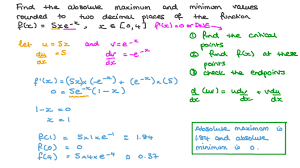 Find the absolute maximum and minimum values
rounded to two decimal places of the function
f(x) = 5xe⁻ˣ, x ∈ [0,4]
f'(x)=0 or DNE
① find the critical
points
② find f(x) at these
points
③ check the endpoints
let u = 5x and v = e⁻ˣ
du/dx = 5 dv/dx = -e⁻ˣ
d/dx (uv) = u dv/dx + v du/dx
f'(x) = (5x)(-e⁻ˣ) + (e⁻ˣ)(5)
0 = 5e⁻ˣ(1-x)
1-x = 0
x = 1
f(1) = 5×1×e⁻¹ = 1.84
f(0) = 0
f(4) = 5×4×e⁻⁴ = 0.37
Absolute maximum is
1.84 and absolute
minimum is 0.